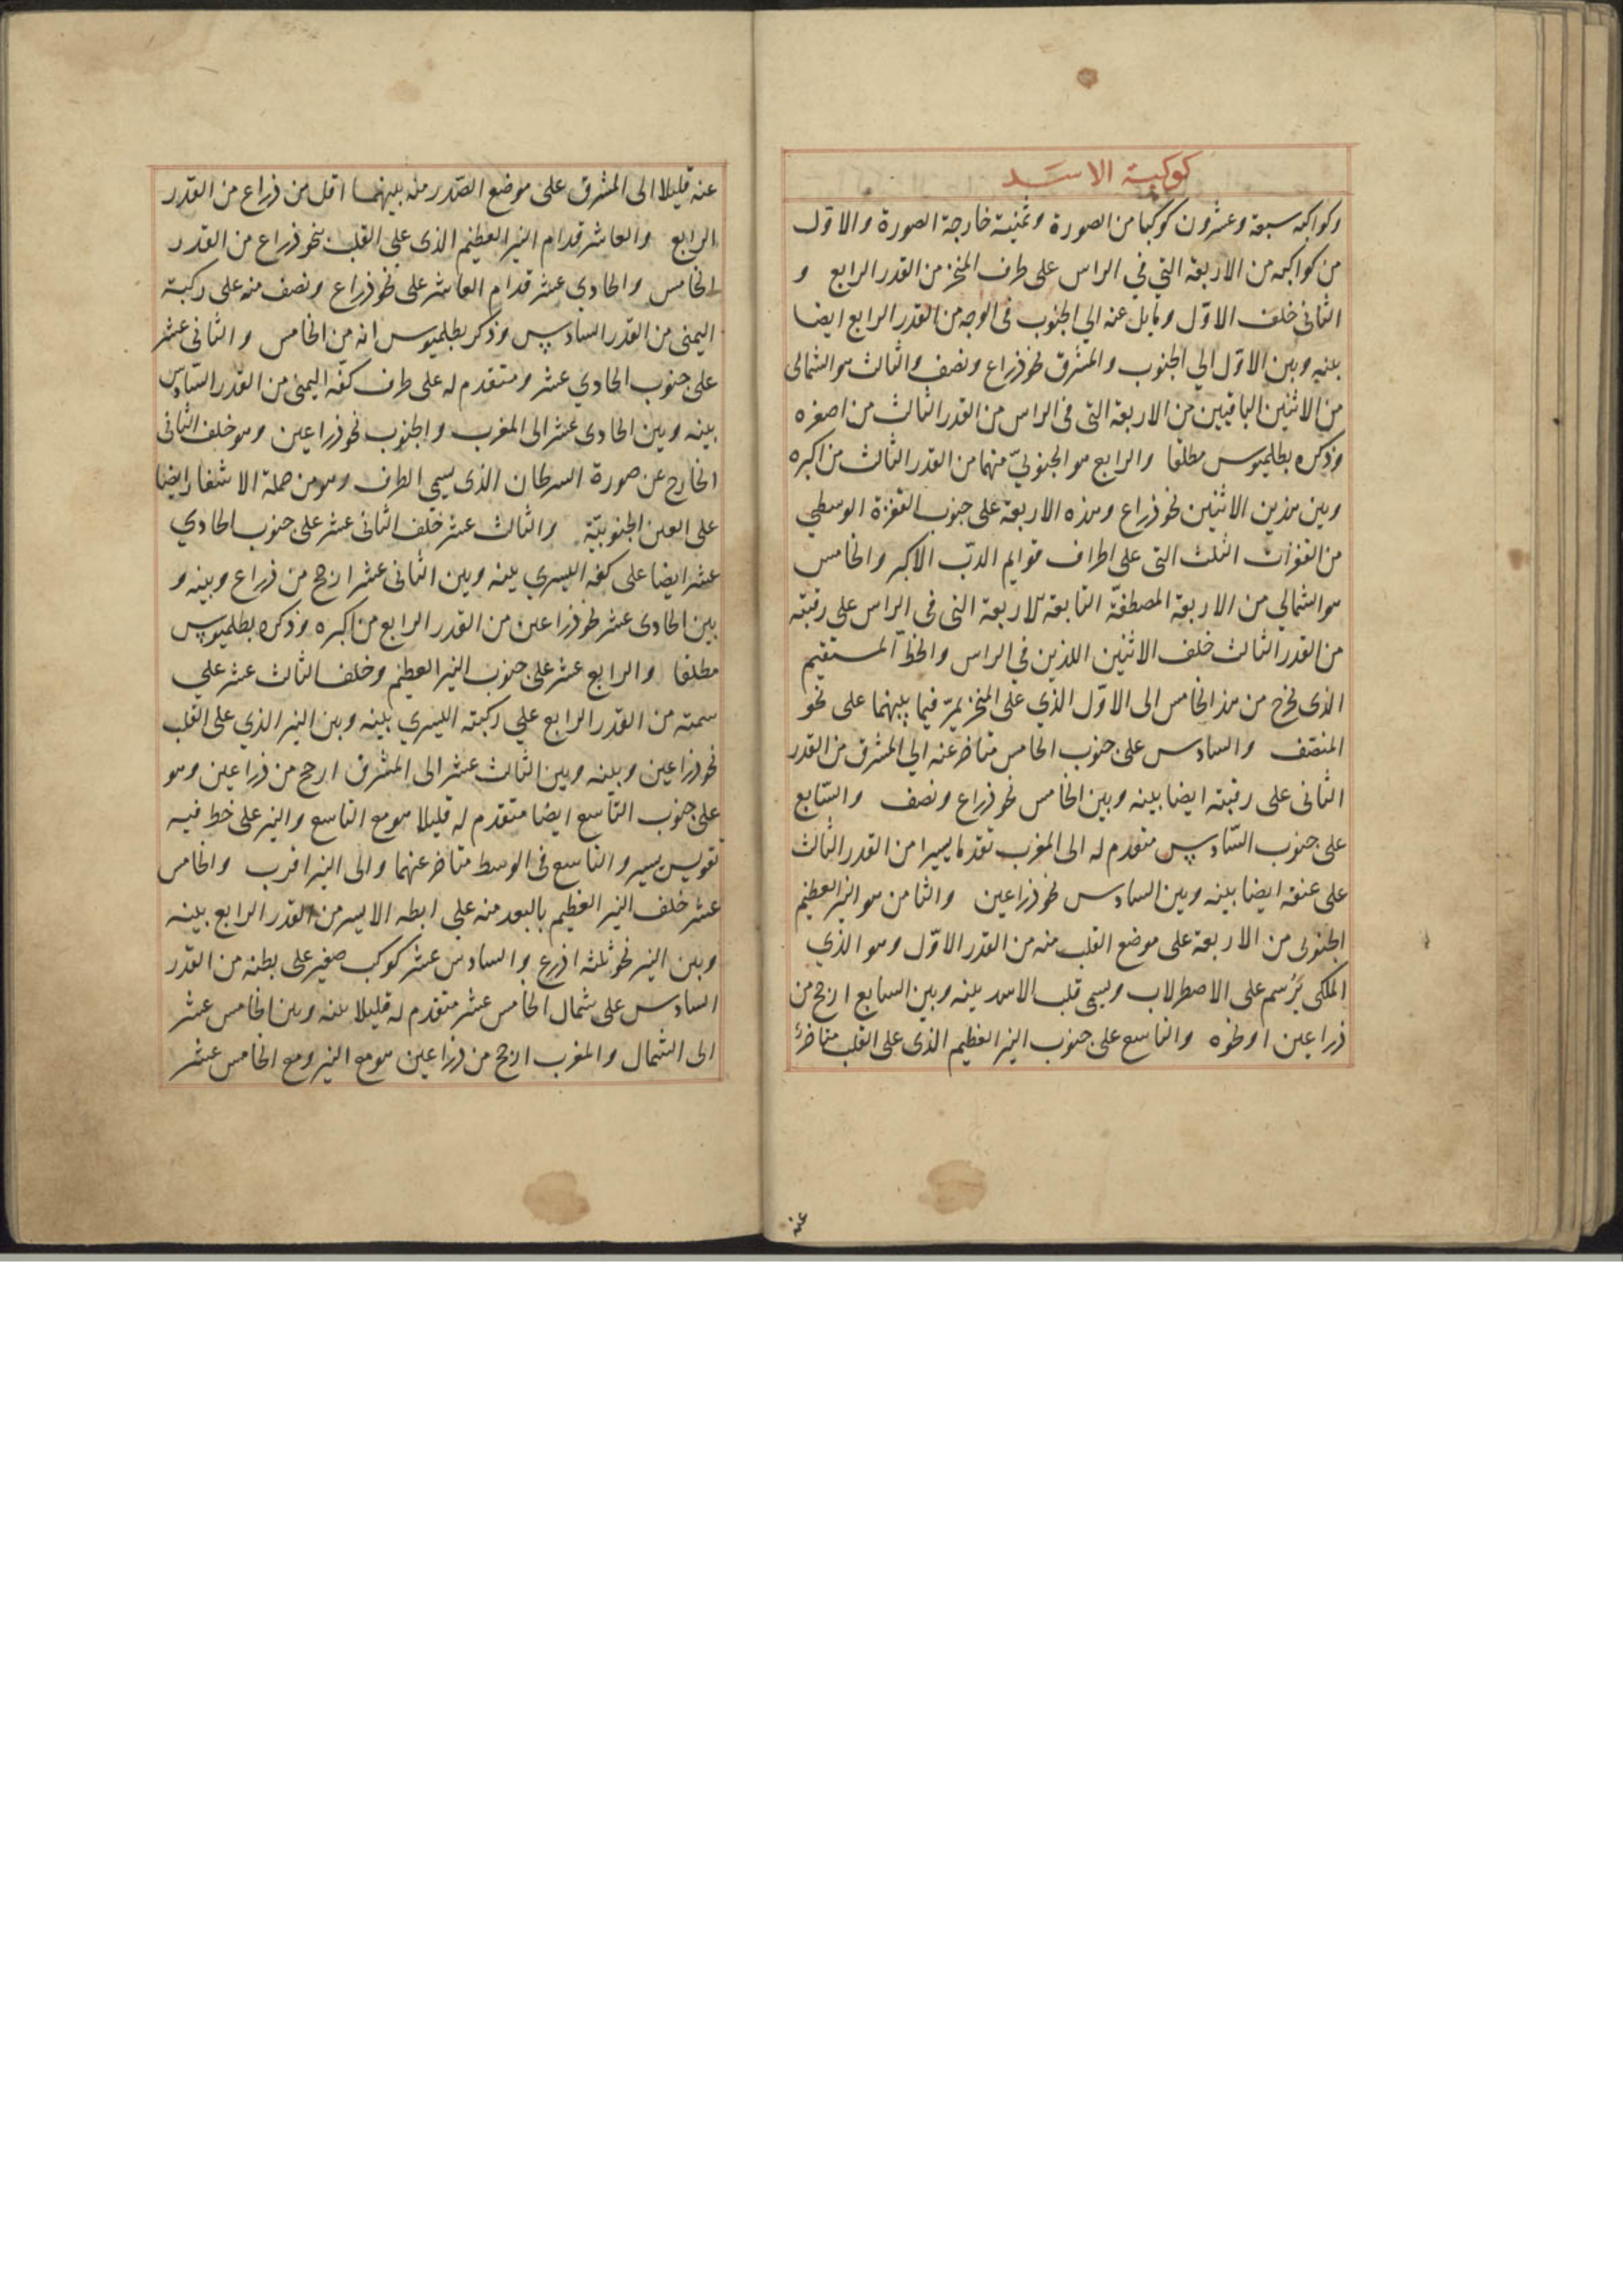 كوكبة الاسد
وكواكبه سبعة وعشرون كوكبا من الصورة وثمنية خارجة الصورة والاول
من كواكبه من الاربعة التي في الراس على طرف المنخر من القدر الرابع و
الثانى خلف الاوّل ومايل عنه الي الجنوب فى الوجه من القدر الرابع ايضا
بينه وبين الاوّل الي الجنوب والمشرق نحو ذراع ونصف والثالث هو الشمالى
من الاثنين الباقيين من الاربعة التى فى الراس من القدر الثالث من اصغره
وذكره بطلميوس مطلقا والرابع هو الجنوبىّ منهما من القدر الثالث من اكبره
وبين هذين الاثنين نحو ذراع وهذه الاربعة على جنوب القفزة الوسطي
من القفزات الثلث التى على اطراف قوايم الدبّ الاكبر والخامس
هو الشمالي من الاربعة المصطفّة التابعة للاربعة التى فى الراس على رقبته
من القدر الثالث خلف الاثنين اللذين في الراس والخطّ المستقيم
الذى يخرج من هذا الخامس الى الاوّل الذي على المنخر يمرّ فيما بينهما على نحو
المنتصف والسادس على جنوب الخامس متاخر عنه الي المشرق من القدر
الثانى على رقبته ايضا بينه وبين الخامس نحو ذراع ونصف والسّابع
على جنوب السّادس متقدم له الى المغرب تقدما يسيرا من القدر الثالث
على عنقه ايضا بينه وبين السادس نحو ذراعين والثامن هو النير العظيم
الجنوبى من الاربعة على موضع القلب منه من القدر الاوّل وهو الذي
الملكى يُرسم على الاصطرلاب ويسمى قلب الاسد بينه وبين السابع ارجح من
ذراعين او نحوه والتاسع على جنوب النير العظيم الذى على القلب متاخر
عنه
عنه قليلا الى المشرق على موضع الصّدر منه بينهما اقل من ذراع من القدر
الرابع والعاشر قدام النير العظيم الذى على القلب بنحو ذراع من القدر
الخامس والحادي عشر قدام العاشر على نحو ذراع ونصف منه على ركبته
اليمنى من القدر السادس وذكر بطلميوس انه من الخامس والثانى عشر
على جنوب الحادي عشر ومتقدم له على طرف كفّه اليمنى من القدر السّادس
بينه وبين الحادى عشر الى المغرب والجنوب نحو ذراعين وهو خلف الثانى
الخارج عن صورة السرطان الذى يسمى الطرف وهو من جملة الاشفار ايضا
على العين الجنوبيّة والثالث عشر خلف الثانى عشر على جنوب الحادي
عشر ايضا على كفه اليسري بينه وبين الثانى عشر ارجح من ذراع وبينه و
بين الحادى عشر نحو ذراعين من القدر الرابع من اكبره وذكره بطلميوس
مطلقا والرابع عشر على جنوب النير العظيم وخلف الثالث عشر علي
سمته من القدر الرابع علي ركبته اليسري بينه وبين النير الذي على القلب
نحو ذراعين وبينه وبين الثالث عشر الى المشرق ارجح من ذراعين وهو
على جنوب التاسع ايضا متقدم له قليلا هو مع التاسع والنير على خط فيه
تقويس يسير والتاسع فى الوسط متاخر عنهما والى النير اقرب والخامس
عشر خلف النير العظيم بالبعد منه علي ابطه الايسر من القدر الرابع بينه
وبين النير نحو ثلثه اذرع والسادس عشر كوكب صغير على بطنه من القدر
السادس على شمال الخامس عشر متقدم له قليلا بينه وبين الخامس عشر
الى الشمال والمغرب ارجح من ذراعين هو مع النير ومع الخامس عشر